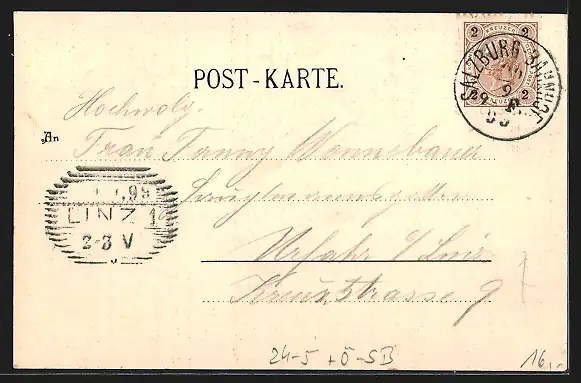 2 KREUZER 2
SALZBURG-BAHNHOF
POST-KARTE.
Hochwolg.
An
Frau Fanny Wannebauer
98
LINZ 1
2-3 V
Urfahr b/Linz
Kreuzstrasse 9
24-5 +Ö-SB
16,-